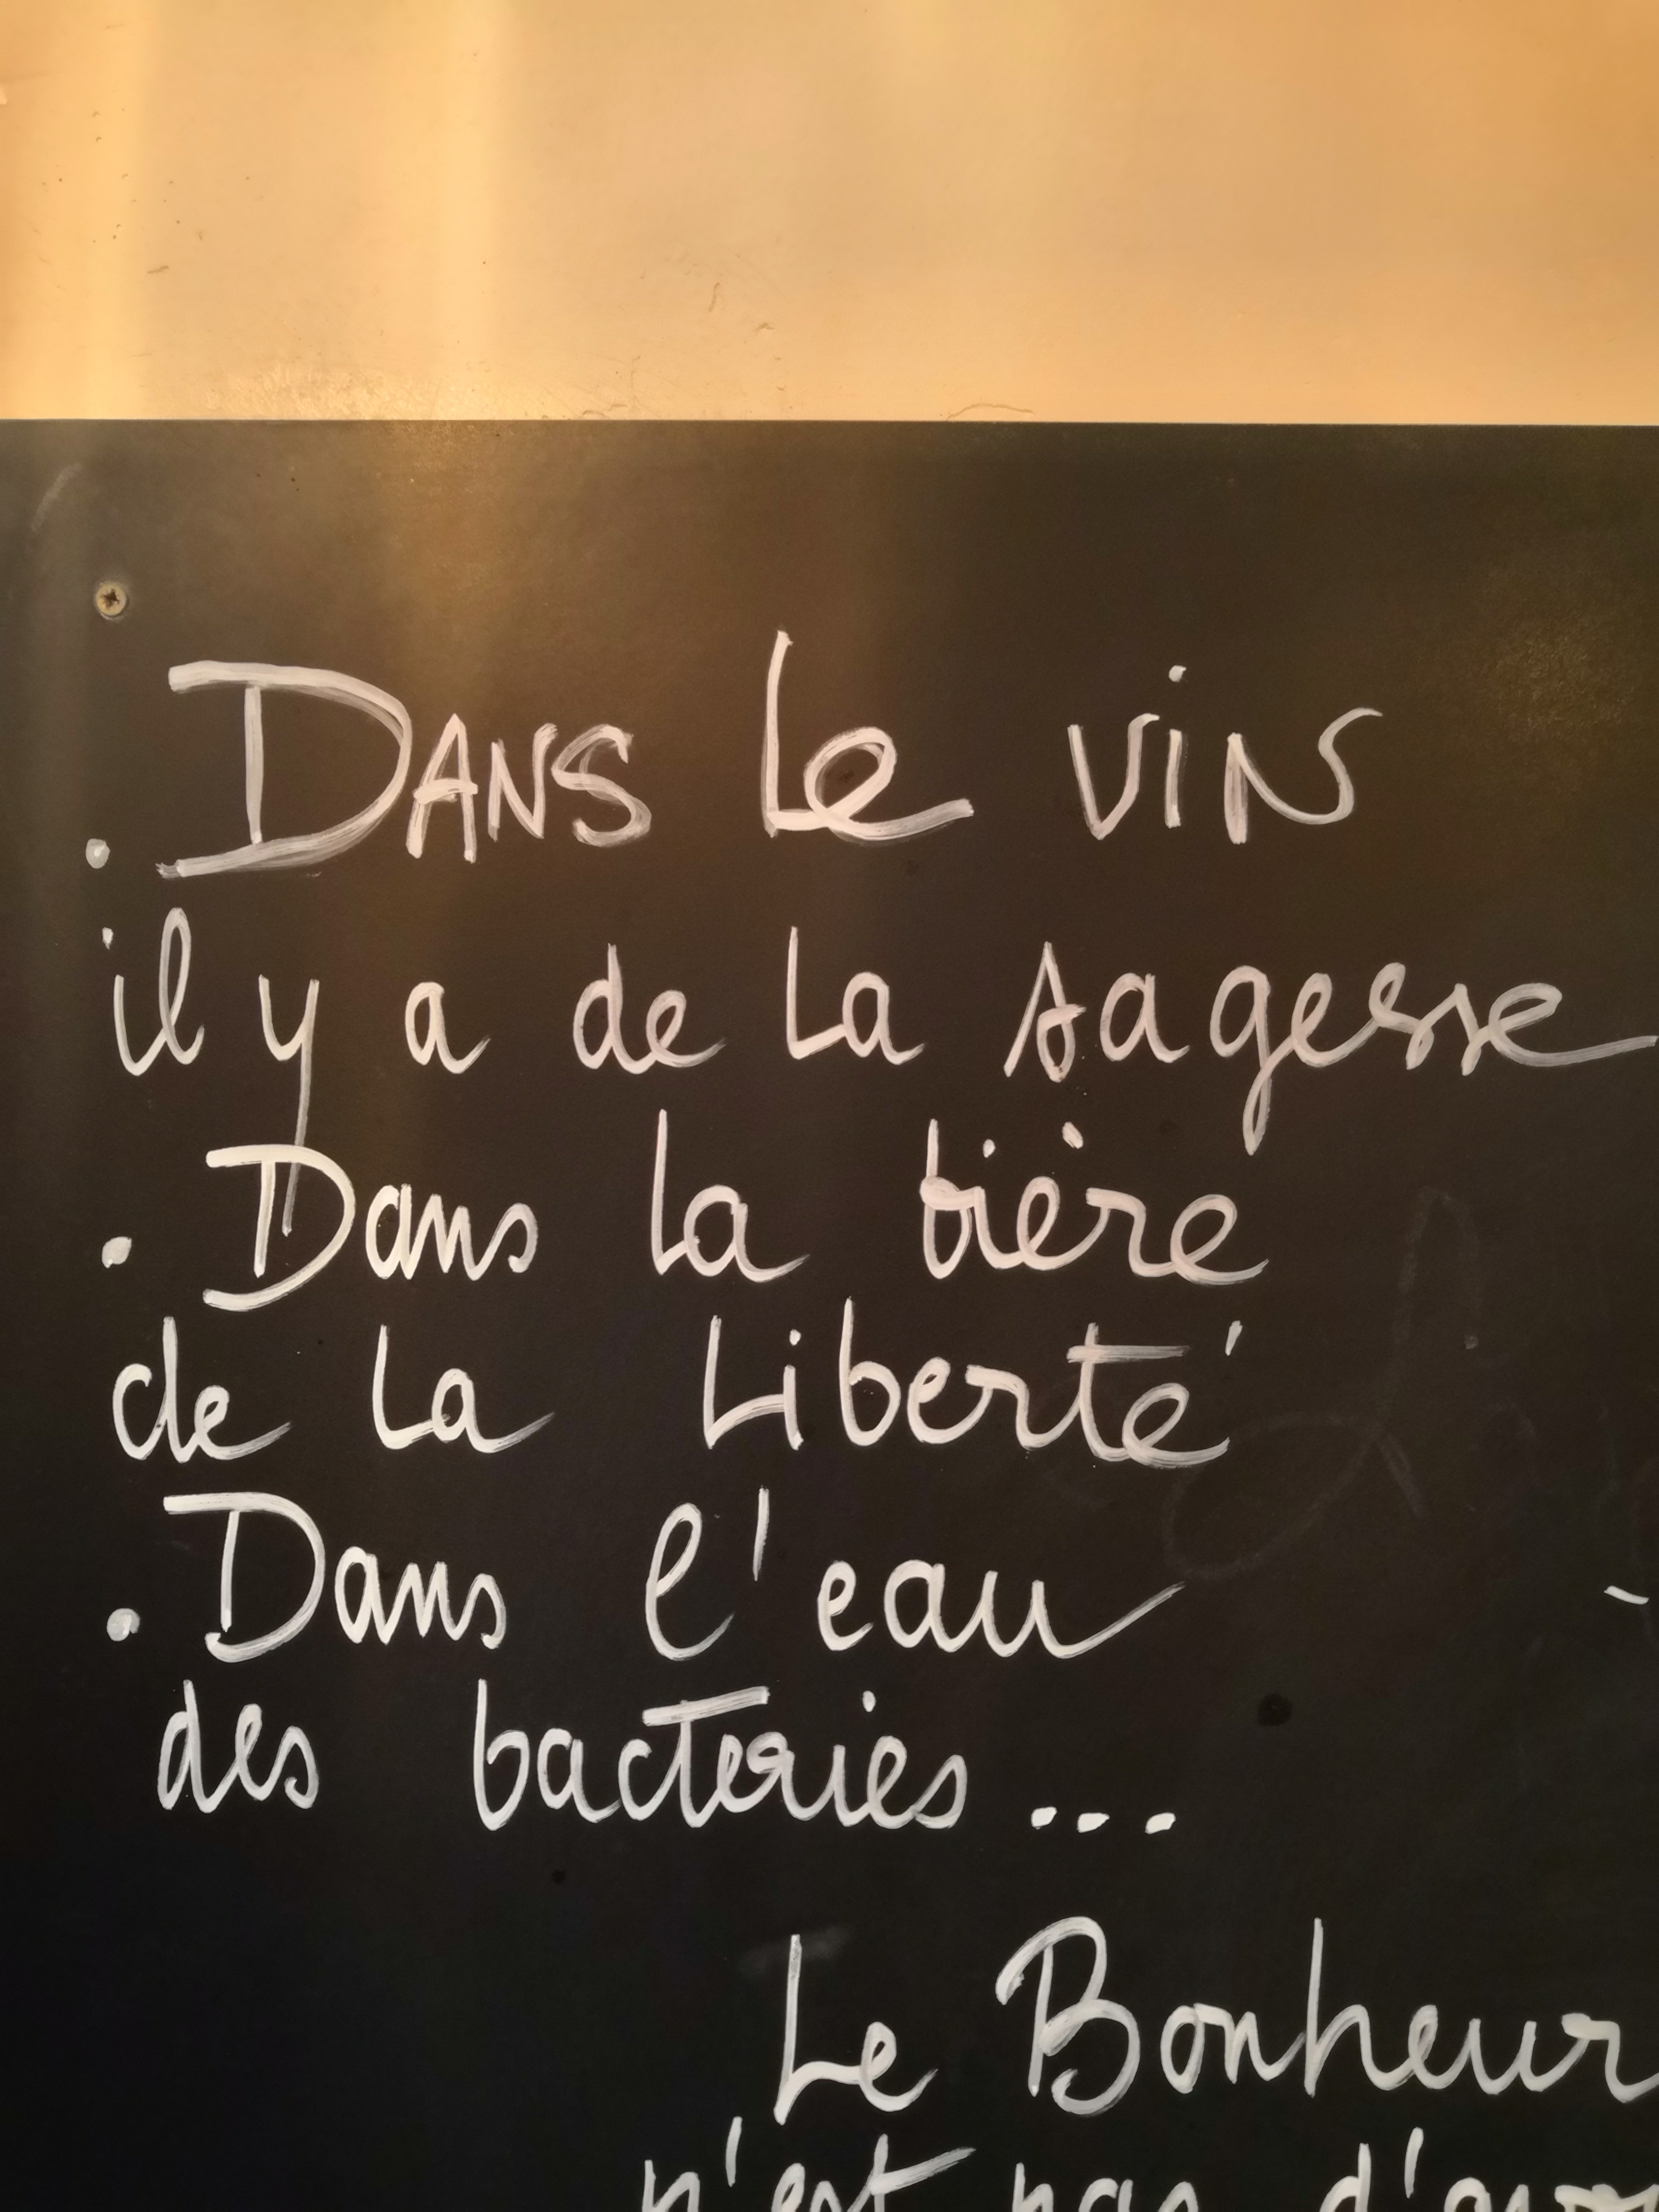 . DANS Le viN
il y a de la sagesse
. Dans la bière
de la Liberté
. Dans l'eau
des bacteries ...
Le Bonheur
n'est pas